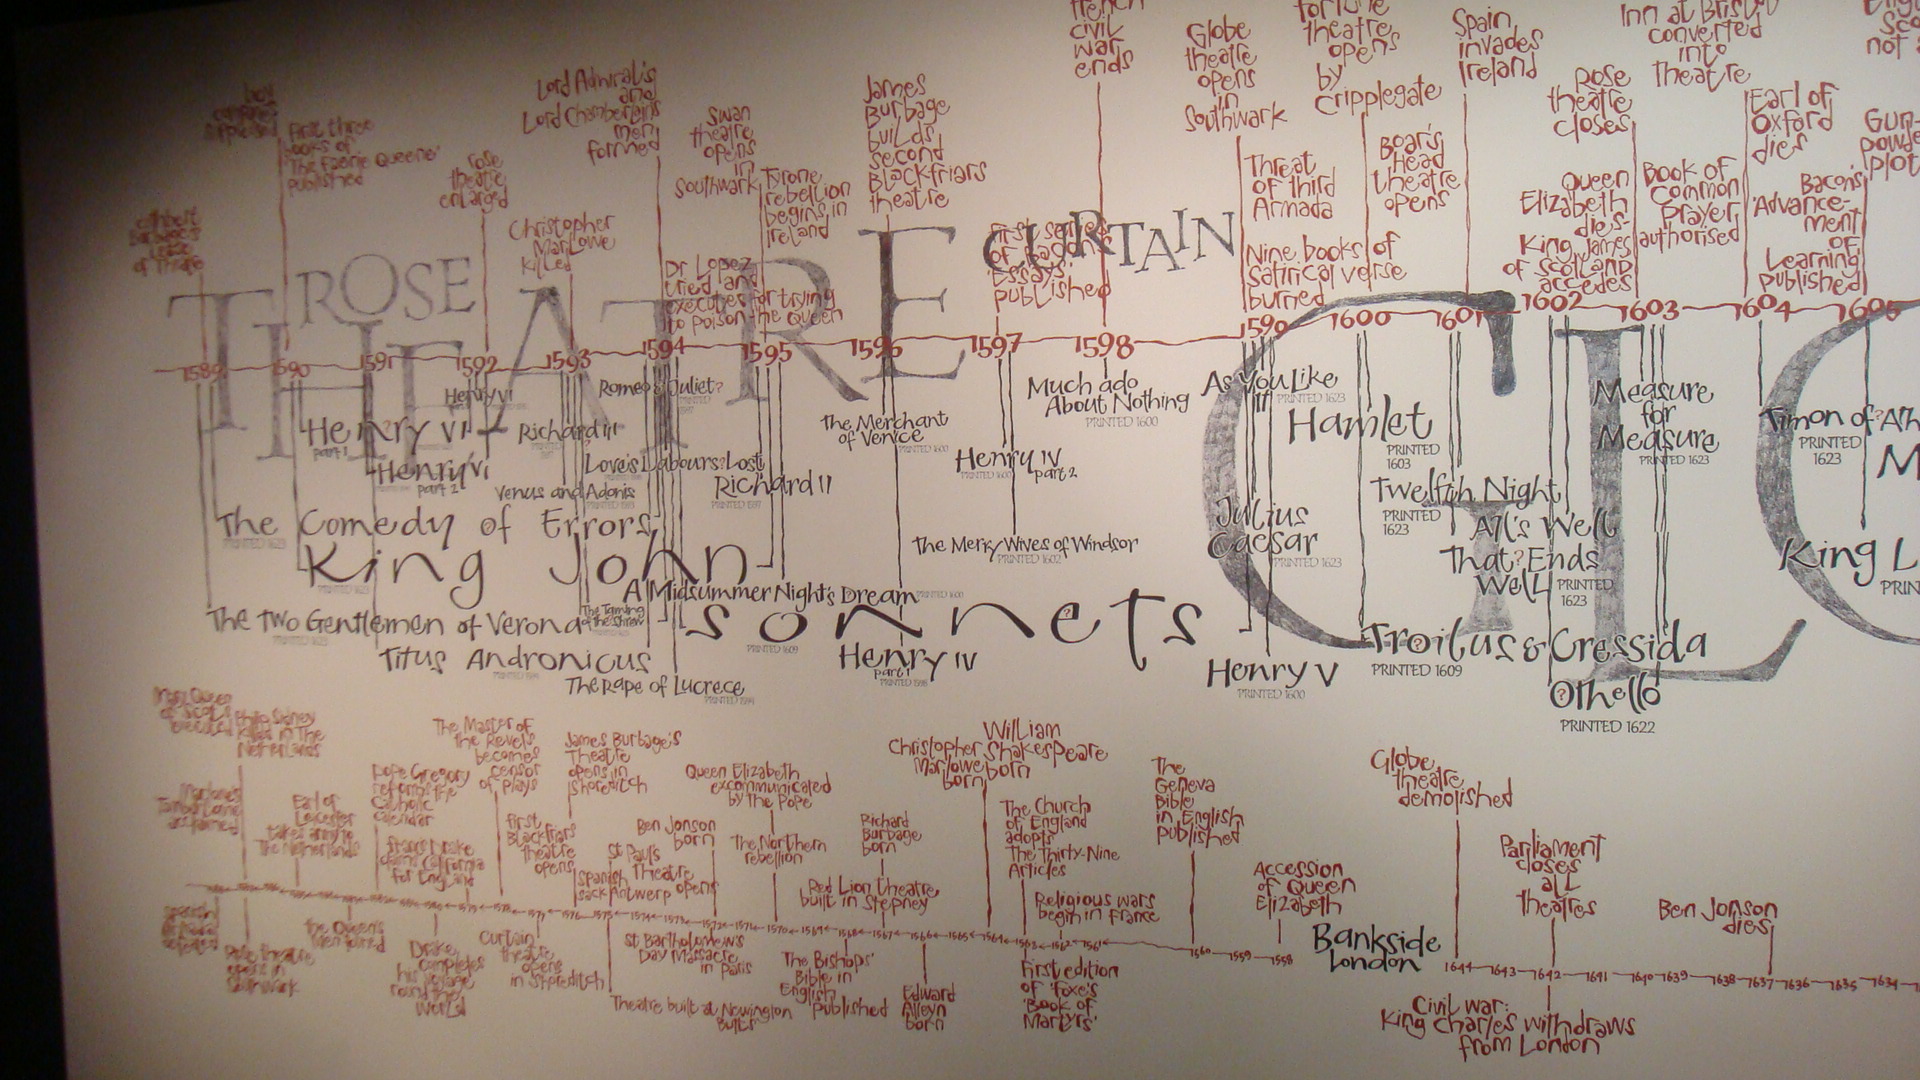 French
civil
war
ends
Globe
theatre
opens
in
Southwark
Fortune
theatre
opens
by
Cripplegate
Spain
invades
Ireland
Inn at Bristol
converted
into
theatre
not
boy
companies
suppressed
First three
books of
'The Faerie Queene'
published
rose
theatre
enlarged
Lord Admiral's
and
Lord Chamberlain's
men
formed
Swan
theatre
opens
in
Southwark
James
Burbage
builds
second
Blackfriars
theatre
Tyrone
rebellion
begins in
Ireland
Threat
of third
Armada
Boar's
Head
theatre
opens
Rose
theatre
closes
Earl of
Oxford
dies
Gun-
powder
plot
Queen
Elizabeth
dies-
King James
of Scotland
accedes
Book of
Common
Prayer
authorised
Bacon's
'Advance-
ment
of
Learning'
published
Cuthbert
Burbage's
lease
of Theatre
Christopher
Marlowe
killed
Dr Lopez
tried and
executed for trying
to poison the Queen
First series
of Bacon's
Essays
published
Nine books of
satirical verse
burned
ROSE
THEATRE
CURTAIN
GLO
1589 1590 1591 1592 1593 1594 1595 1596 1597 1598 1599 1600 1601 1602 1603 1604 1605
Henry VI
Romeo & Juliet?
PRINTED
1597
Much ado
About Nothing
PRINTED 1600
As You Like
It
PRINTED 1623
Measure
for
Measure
PRINTED 1623
Henry VI
part 1
Richard III
The Merchant
of Venice
PRINTED 1600
Hamlet
PRINTED
1603
Timon of?Ath
PRINTED
1623
Henry VI
part 2
Love's Labours?Lost
Venus and Adonis
PRINTED 1593
Richard II
PRINTED 1597
Henry IV
part 2
PRINTED 1600
Twelfth Night
PRINTED
1623
The Comedy of Errors
PRINTED 1623
Julius
Caesar
PRINTED 1623
All's Well
that?Ends
Well
PRINTED
1623
King John
PRINTED 1623
The Merry Wives of Windsor
PRINTED 1602
King L
PRIN
A Midsummer Night's Dream
PRINTED 1600
The Two Gentlemen of Verona
PRINTED 1623
The Taming
of the Shrew
sonnets
PRINTED 1609
Titus Andronicus
PRINTED 1594
Henry IV
part 1
PRINTED 1598
Troilus & Cressida
PRINTED 1609
The Rape of Lucrece
PRINTED 1594
Henry V
PRINTED 1600
Othello
PRINTED 1622
Mary Queen
of Scots
executed
Philip Sidney
killed in The
Netherlands
The Master of
the Revels
becomes
censor
of plays
James Burbage's
Theatre
opens in
Shoreditch
Queen Elizabeth
excommunicated
by the Pope
Christopher
Marlowe
born
William
Shakespeare
born
The
Geneva
Bible
in English
published
Globe
theatre
demolished
Marlowe's
Tamburlaine
acclaimed
Earl of
Leicester
takes army to
The Netherlands
Pope Gregory
reforms the
Catholic
calendar
Francis Drake
claims California
for England
First
Blackfriars
theatre
opens
St Paul's
Theatre
opens
Spanish
sack Antwerp
Ben Jonson
born
The Northern
rebellion
Richard
Burbage
born
Red Lion theatre
built in Stepney
The Church
of England
adopts
The Thirty-Nine
Articles
Religious wars
begin in France
Accession
of Queen
Elizabeth
Parliament
closes
all
theatres
Ben Jonson
dies
1572 1571 1570 1569 1568 1567 1566 1565 1564 1563 1562 1561 1560 1559 1558
Bankside
London
1644 1643 1642 1641 1640 1639 1638 1637 1636 1635 1634
Spanish
Armada
defeated
Rose theatre
opens in
Southwark
The Queen's
Men formed
Drake
completes
his voyage
round the
world
Curtain
theatre
opens
in Shoreditch
St Bartholomew's
Day Massacre
in Paris
Theatre built at Newington
Butts
The Bishops'
Bible in
English
published
Edward
Alleyn
born
First edition
of 'Foxe's
Book of
Martyrs'
Civil war:
King Charles withdraws
from London